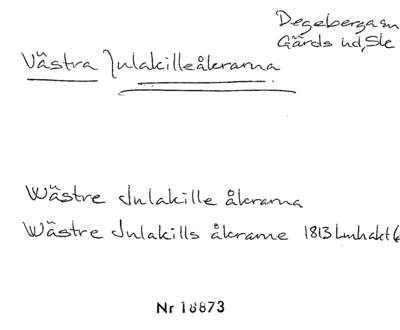 Degeberga sn
Gärds hd, Sk
Västra Julakilleåkrarna
Wästre Julakille åkrarna
Wästre Julakills åkrarne 1813 Lmhakt 6
Nr 18873